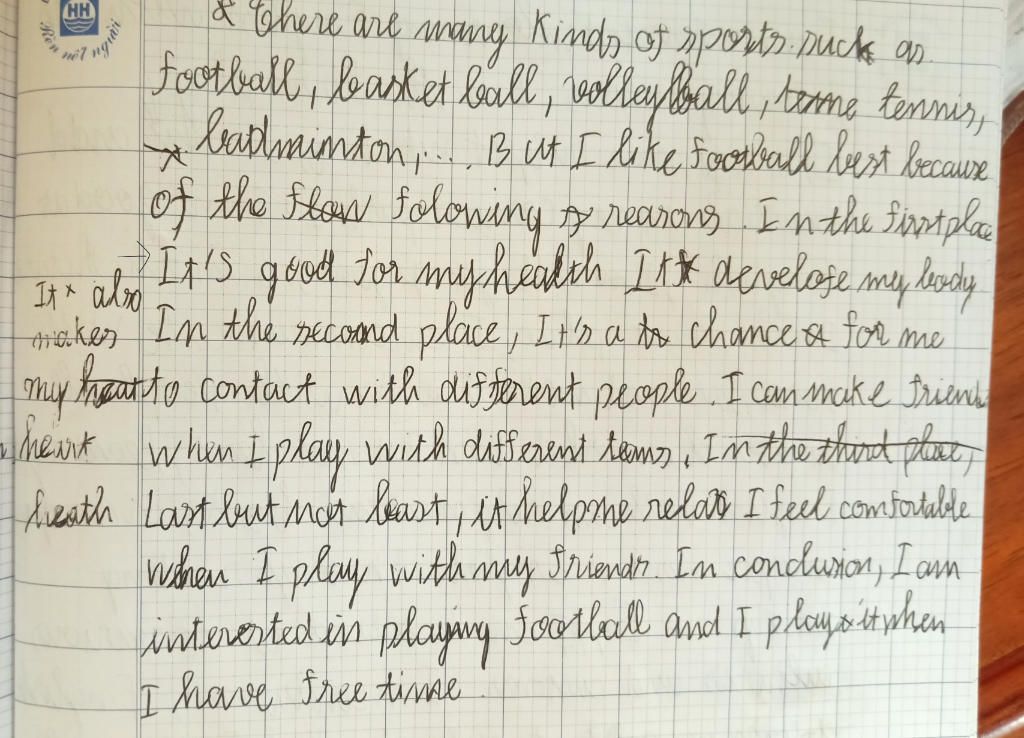 HH
Rèn nét người
& There are many kinds of sports such as
football, basket ball, volleyball, tennis,
badminton,... But I like football best because
of the folowing reasons. In the first place
It's good for my health It develofe my body
It also
makes
my
heart
heath
In the second place, It's a chance for me
to contact with different people. I can make friends
when I play with different teams. In the third place,
Last but not least, it help me relax I feel comfortable
when I play with my friends. In conclusion, I am
interested in playing football and I play it when
I have free time.